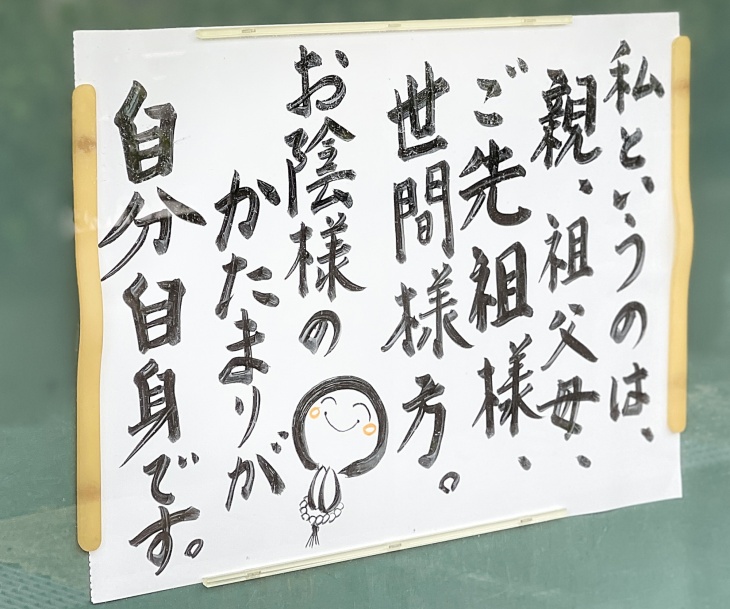 私というのは、
親、祖父母、
ご先祖様、
世間様方。
お陰様の
かたまりが
自分自身です。